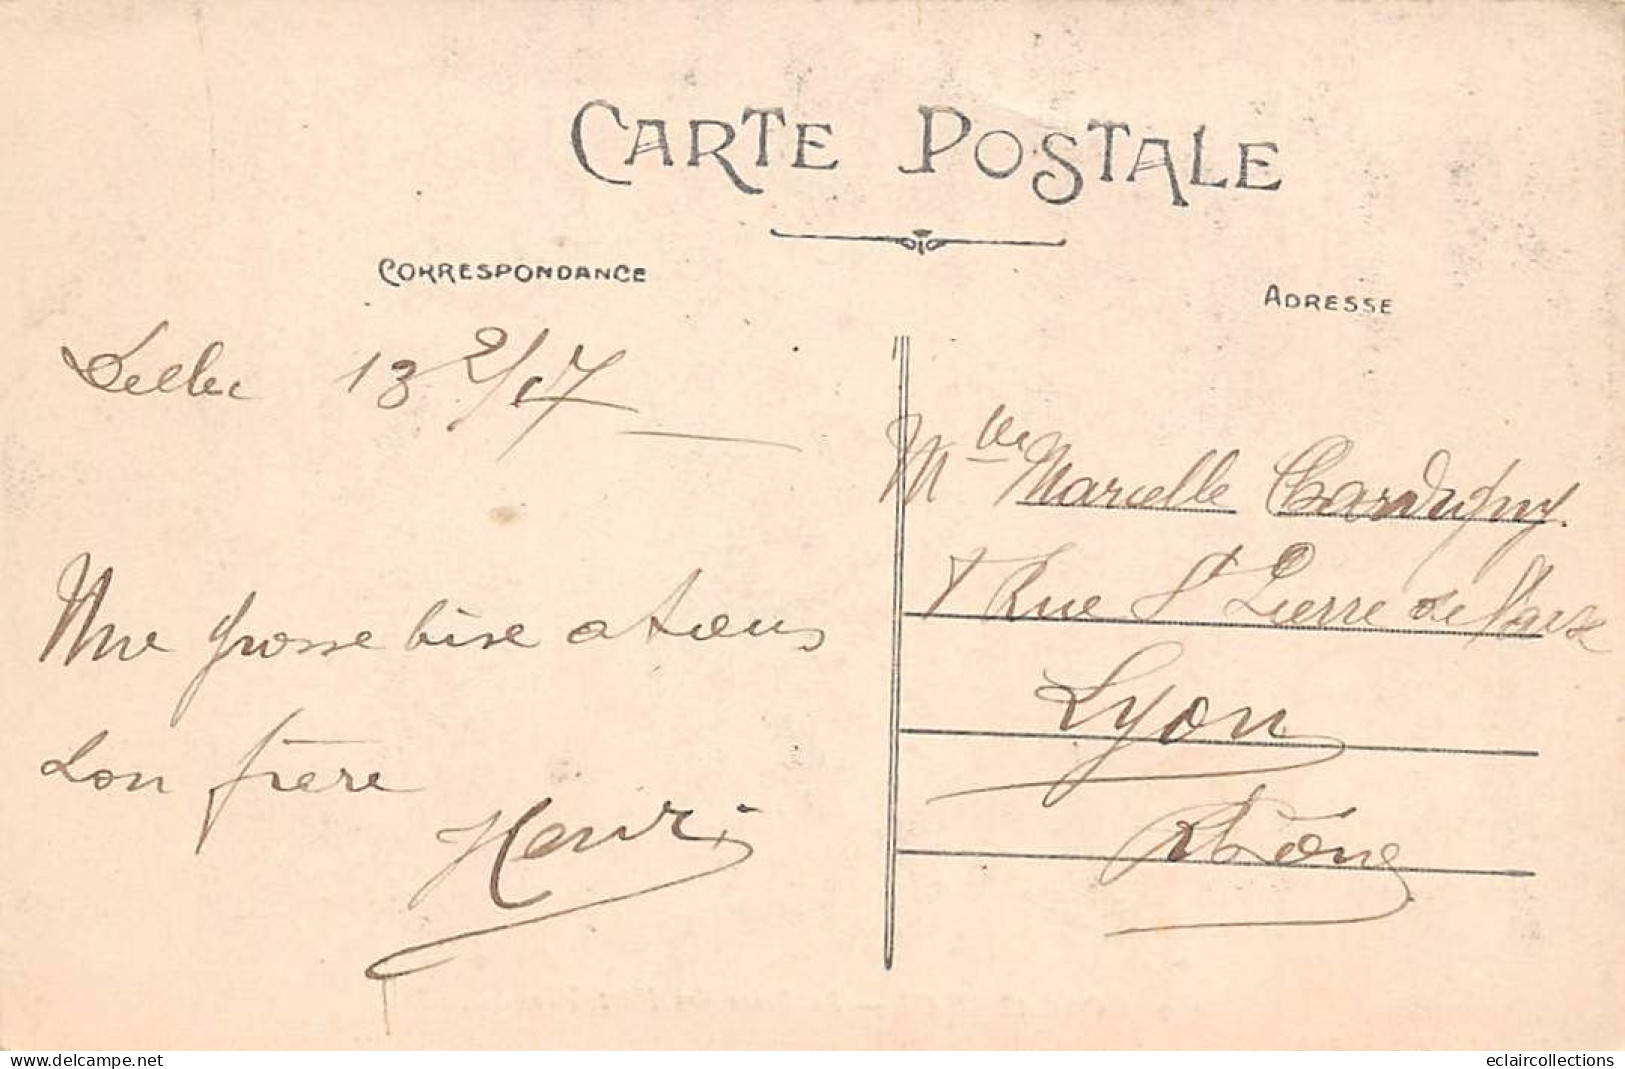 CARTE POSTALE
CORRESPONDANCE
ADRESSE
13 2/07
Une grosse bise a tous
Ton frère
Henri
Mlle Marcelle Chardigny.
Rue St Pierre de Vaise
Lyon
Rhône
delcampe.net
eclaircollections